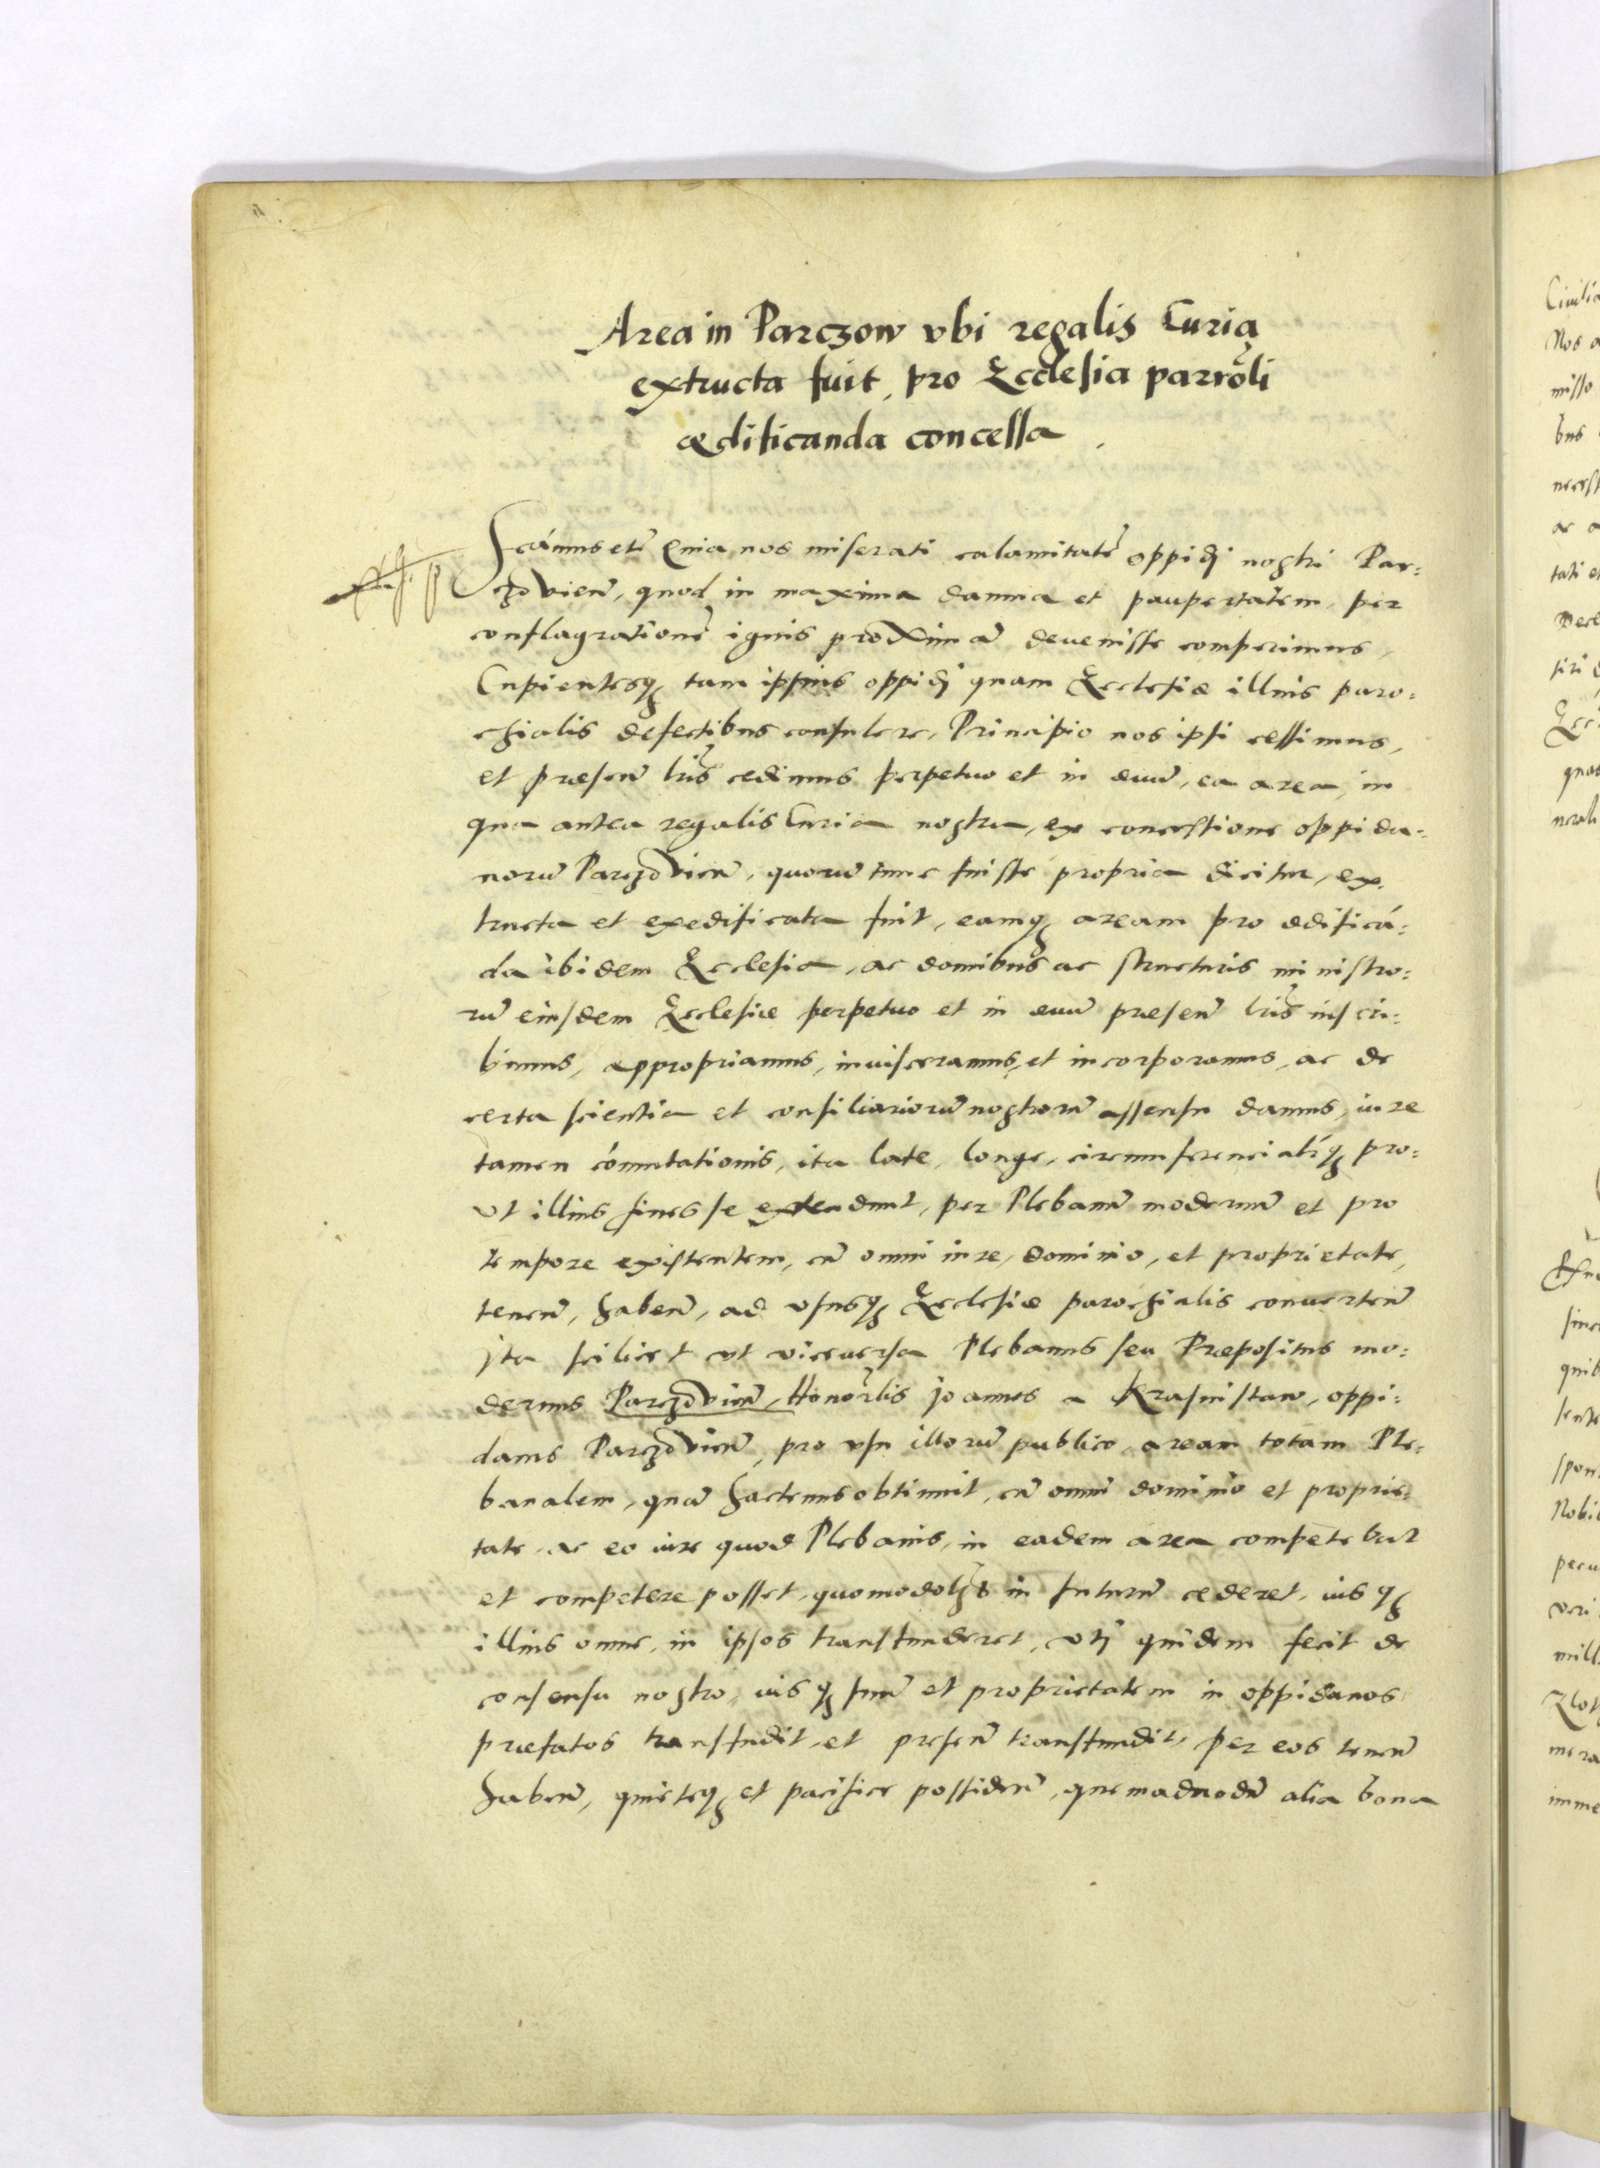 Area in Parczow vbi regalis Curia
extructa fuit, pro Ecclesia parrōli
ædificanda concessa.
Scimus etc̃ Quia nos miserati calamitatẽ oppidi nostri Par=
czovień, quod in maxima damna et paupertatem, per
conflagrationẽ ignis proximã devenisse comperimus,
Cupientesq tam ipsius oppidi quam Ecclesiæ illius paro=
chialis defectibus consulere, Principio nos ipsi cessimus,
et præseñ lrĩs cedimus perpetuo et in æuũ, ea area, in
qua antea regalis Curia nostra, ex concessione oppida=
norũ Parczovień, quorũ tunc fuisse propria dicitur, ex=
tructa et exedificata fuit, eamq aream pro ædificã=
da ibidem Ecclesia, ac domibus ac structuris ministro=
rũ eiusdem Ecclesiæ perpetuo et in æuũ præseñ lrĩs inscri=
bimus, appropriamus, inuisceramus, et incorporamus, ac de
certa scientia et consiliariorũ nostrorũ assensu damus, iure
tamen cõmutationis, ita late, longe, circumferencialiq pro=
ut illius fines se extendunt, per Plebanũ modernũ et pro
tempore existentem, cũ omni iure, dominio, et proprietate,
teneñ, habeñ, ad vsusq Ecclesiæ parochialis conuerteñ
Ita scilicet vt viceuersa Plebanus seu Præpositus mo=
dernus Parczovień, Honorlis Joannes a Krasnistaw, oppi=
danis Parczovień, pro vsu illorũ publico, aream totam Ple=
banalem, quã hactenus obtinuit, cũ omni dominio et proprie=
tate, ac eo iure quod Plebanis, in eadem area competebat
et competere posset, quomodolibet in futurũ cederet, iusq
illius omne, in ipsos transfunderet, vti quidem fecit de
consensu nostro, iusq suũ et proprietatem in oppidanos
præfatos transfudit, et preseñ transfundit, per eos teneñ
habeñ, quieteq et pacifice possideñ, quemadmodũ alia bona